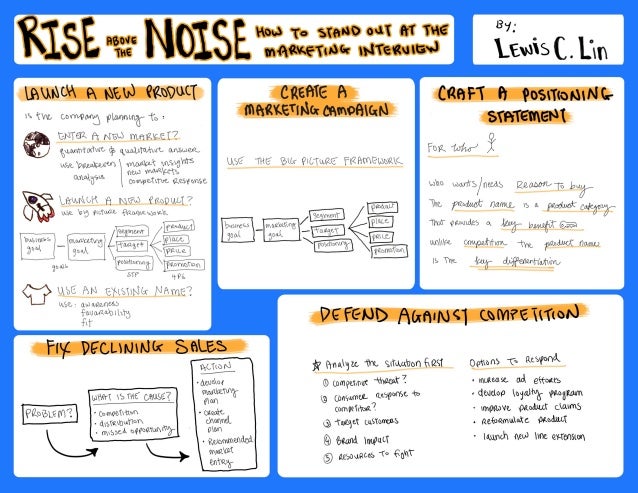 RISE ABOVE THE NOISE HOW TO STAND OUT AT THE MARKETING INTERVIEW
By:
LEWIS C. Lin
LAUNCH A NEW PRODUCT
is the company planning to:
ENTER A NEW MARKET?
quantitative & qualitative answer
use breakeven analysis
market insights
new markets
competitive response
LAUNCH A NEW PRODUCT?
use big picture framework
business goal
marketing goal
goals
segment
target
positioning
STP
product
place
price
promotion
4 P's
USE AN EXISTING NAME?
use: awareness
favorability
fit
CREATE A MARKETING CAMPAIGN
USE THE BIG PICTURE FRAMEWORK
business goal
marketing goal
segment
target
positioning
product
place
price
promotion
CRAFT A POSITIONING STATEMENT
FOR who
who wants/needs Reason to buy
The product name is a product category
That provides a key benefit
unlike competition the product name
is The key differentiation
FIX DECLINING SALES
PROBLEM?
WHAT IS THE CAUSE?
• competition
• distribution
• missed opportunity
ACTION
• develop marketing plan
• create channel plan
• Recommended market entry
DEFEND AGAINST COMPETITION
Analyze the situation first
① competitive threat?
② consumer response to competitor?
③ target customers
④ Brand Impact
⑤ RESOURCES TO fight
Options To Respond
• increase ad efforts
• develop loyalty program
• improve product claims
• Reformulate product
• launch new line extension